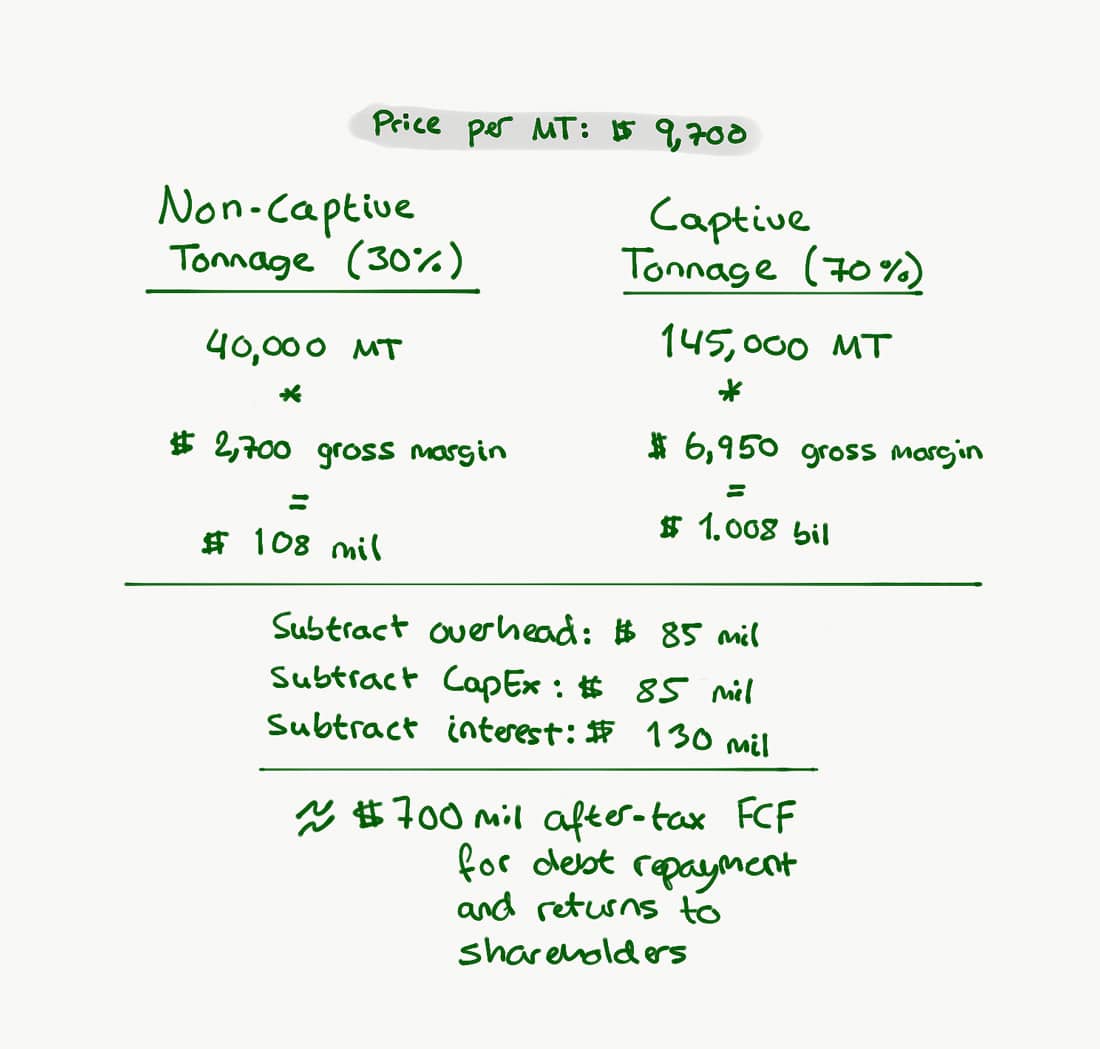 Price per MT: $ 9,700
Non-Captive
Tonnage (30%)
40,000 MT
*
$ 2,700 gross margin
=
$ 108 mil
Captive
Tonnage (70%)
145,000 MT
*
$ 6,950 gross margin
=
$ 1.008 bil
Subtract overhead: $ 85 mil
Subtract CapEx: $ 85 mil
Subtract interest: $ 130 mil
≈ $700 mil after-tax FCF
for debt repayment
and returns to
shareholders